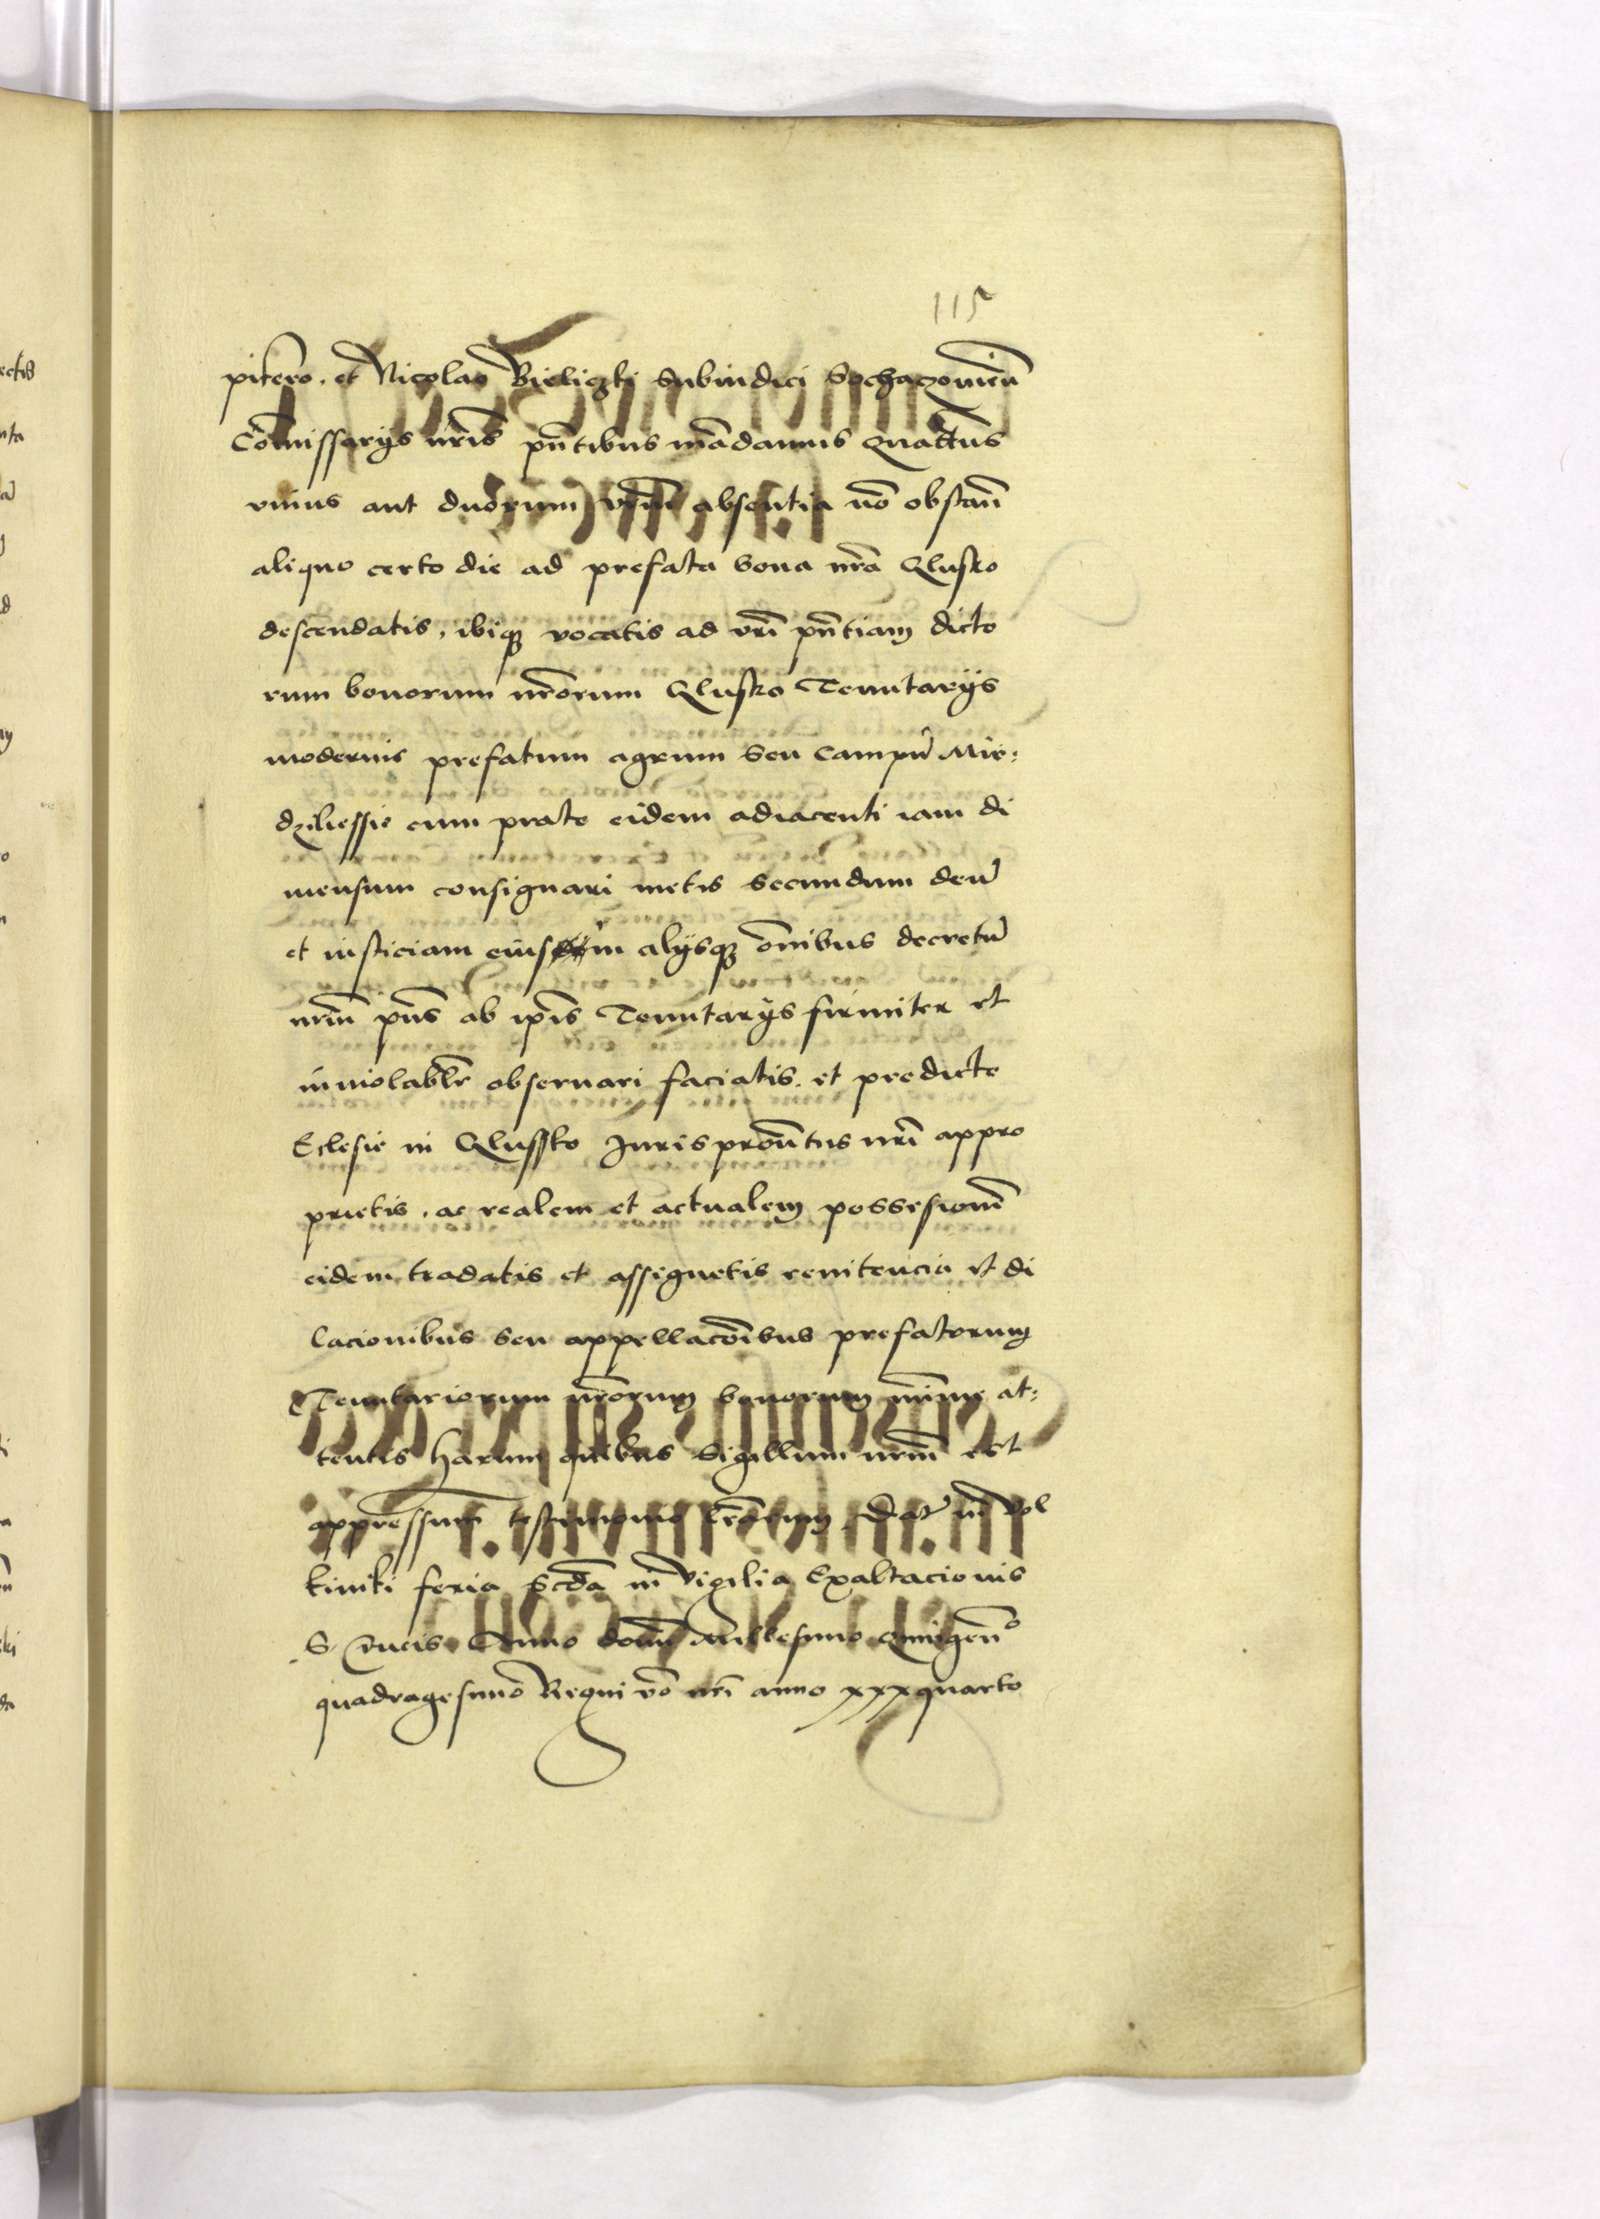 115
pifero. et Nicolao Bieliczki Subiudici Sochaczouień
Com̄issarijs nr̄is pn̄tibus mādamus Quatten̄s
vnius aut duorum vr̄m absentia nō obstan̄
aliquo certo die ad prefata bona nr̄a Qlusko
descendatis, ibiq3 vocatis ad vr̄i pn̄tiam dicto
rum bonorum nr̄orum Qlusko Tenutarijs
modernis prefatum agrum seu campū Mie=
dzilessie cum prato eidem adiacenti iam di
mensum consignari metis secundum deū
et iusticiam alijsq3 om̄ibus decretū
nr̄m pn̄s ab ip̄is Tenutarijs firmiter et
inuiolabl̄r obseruari faciatis. et predicte
Eclesie in Qlussko Juris nr̄i appro
prietis. ac realem et actualem possesionē
eidem tradatis et assignetis renitencia et di
lacionibus seu appellacōibus prefatorum
Tenutariorum nr̄orum bonorum mi̅me at=
tentis harum quibus Sigillum nr̄m est
appressum testimonio lr̄arum. Dat̄ in Vol
kiniki feria Scd̄a in Vigilia Exaltacionis
S. Crucis Anno dom̄ Millesimo Quingen̄o
quadragesimo Regni v̄o nr̄i anno xxxquarto